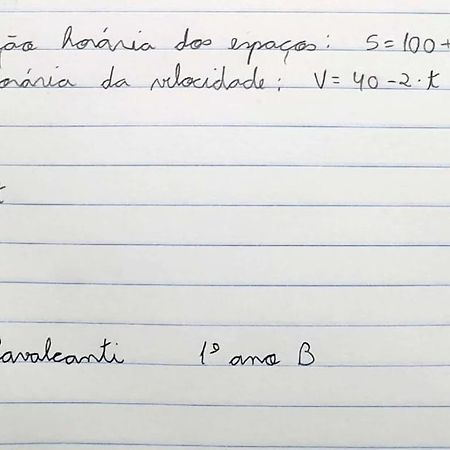 ção horária dos espaços: S = 100 +
orária da velocidade: V = 40 - 2 · t
t
Cavalcanti 1º ano B